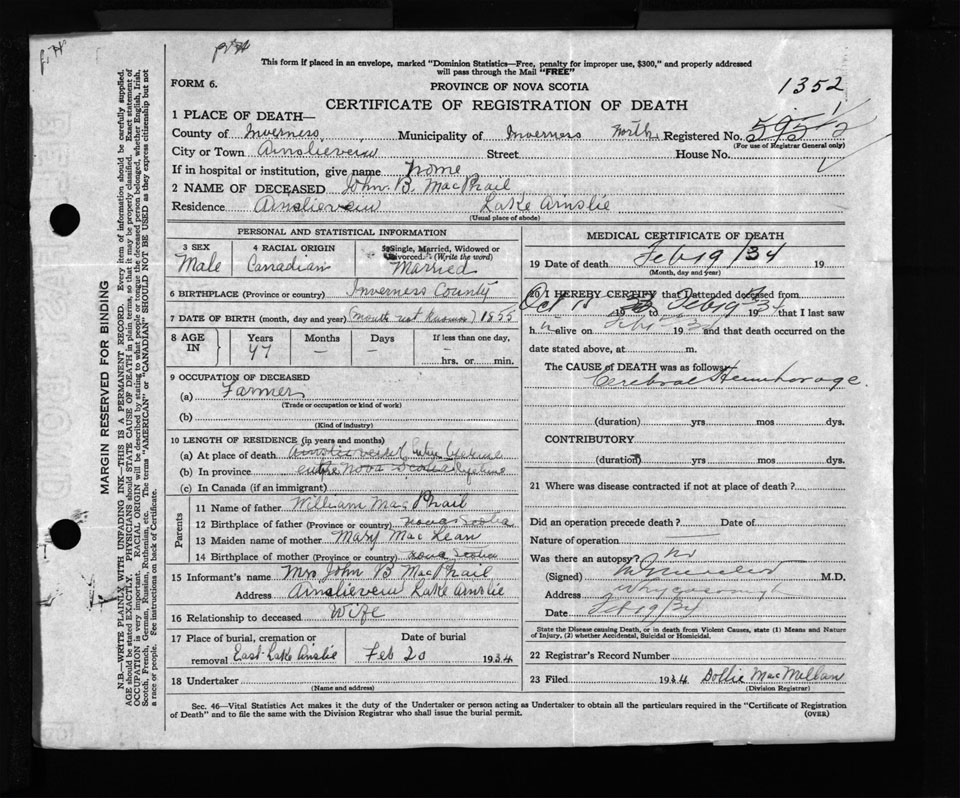 This form if placed in an envelope, marked "Dominion Statistics—Free, penalty for improper use, $300," and properly addressed
will pass through the Mail "FREE"
FORM 6.
PROVINCE OF NOVA SCOTIA
1352
CERTIFICATE OF REGISTRATION OF DEATH
1 PLACE OF DEATH—
County of Inverness Municipality of Inverness North Registered No.
(For use of Registrar General only)
City or Town Ainslieveiw Street House No.
If in hospital or institution, give name home
2 NAME OF DECEASED John. B. MacPhail
Residence Ainslieveiw Lake Ainslie
(Usual place of abode)
PERSONAL AND STATISTICAL INFORMATION
3 SEX Male
4 RACIAL ORIGIN Canadian
5 Single, Married, Widowed or Divorced. (Write the word) Married
6 BIRTHPLACE (Province or country) Inverness County
7 DATE OF BIRTH (month, day and year) Month not Known) 1855
8 AGE IN Years Months Days If less than one day,
— — hrs. or min.
9 OCCUPATION OF DECEASED
(a) Farmer
(Trade or occupation or kind of work)
(b)
(Kind of industry)
10 LENGTH OF RESIDENCE (in years and months)
(a) At place of death
(b) In province Nova Scotia lifetime
(c) In Canada (if an immigrant)
Parents
11 Name of father William MacPhail
12 Birthplace of father (Province or country) nova Scotia
13 Maiden name of mother Mary MacLean
14 Birthplace of mother (Province or country) nova Scotia
15 Informant's name Mrs John B MacPhail
Address Ainslieveiw Lake Ainslie
16 Relationship to deceased Wife
17 Place of burial, cremation or removal East Lake Ainslie
Date of burial Feb 20 1934
18 Undertaker
(Name and address)
MEDICAL CERTIFICATE OF DEATH
19 Date of death Feb 19/34 19
(Month, day and year)
20 I HEREBY CERTIFY that I attended deceased from
19 to Feb 19 1934 that I last saw
h alive on 19 and that death occurred on
date stated above, at m.
The CAUSE of DEATH was as follows:
Cerebral Hemhorage.
(duration) yrs mos dys.
CONTRIBUTORY
(duration) yrs mos dys.
21 Where was disease contracted if not at place of death?
Did an operation precede death? Date of
Nature of operation
Was there an autopsy? No
(Signed) M.D.
Address Whycocomagh
Date Feb 19/34
State the Disease causing Death, or in death from Violent Causes, state (1) Means and Nature
of Injury, (2) whether Accidental, Suicidal or Homicidal.
22 Registrar's Record Number
23 Filed 1934 Dollie MacMillan
(Division Registrar)
Sec. 46—Vital Statistics Act makes it the duty of the Undertaker or person acting as Undertaker to obtain all the particulars required in the "Certificate of Registration
of Death" and to file the same with the Division Registrar who shall issue the burial permit.
(OVER)
MARGIN RESERVED FOR BINDING
N.B.—WRITE PLAINLY WITH UNFADING INK—THIS IS A PERMANENT RECORD. Every item of information should be carefully supplied.
AGE should be stated EXACTLY. PHYSICIANS should STATE CAUSE OF DEATH in plain terms, so that it may be properly classified. Exact statement of
OCCUPATION is very important. RACIAL ORIGIN will be described by stating to what people or tongue the deceased person belonged, whether English, Irish,
Scotch, French, German, Russian, Ruthenian, etc. The terms "AMERICAN" or "CANADIAN" SHOULD NOT BE USED as they express citizenship but not
a race or people. See instructions on back of Certificate.